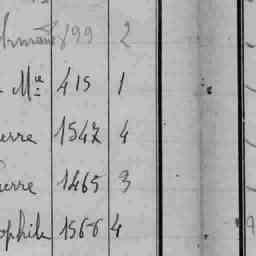 899 2
Me 415 1
erre 1547 4
ierre 1465 3
ophile 1566 4